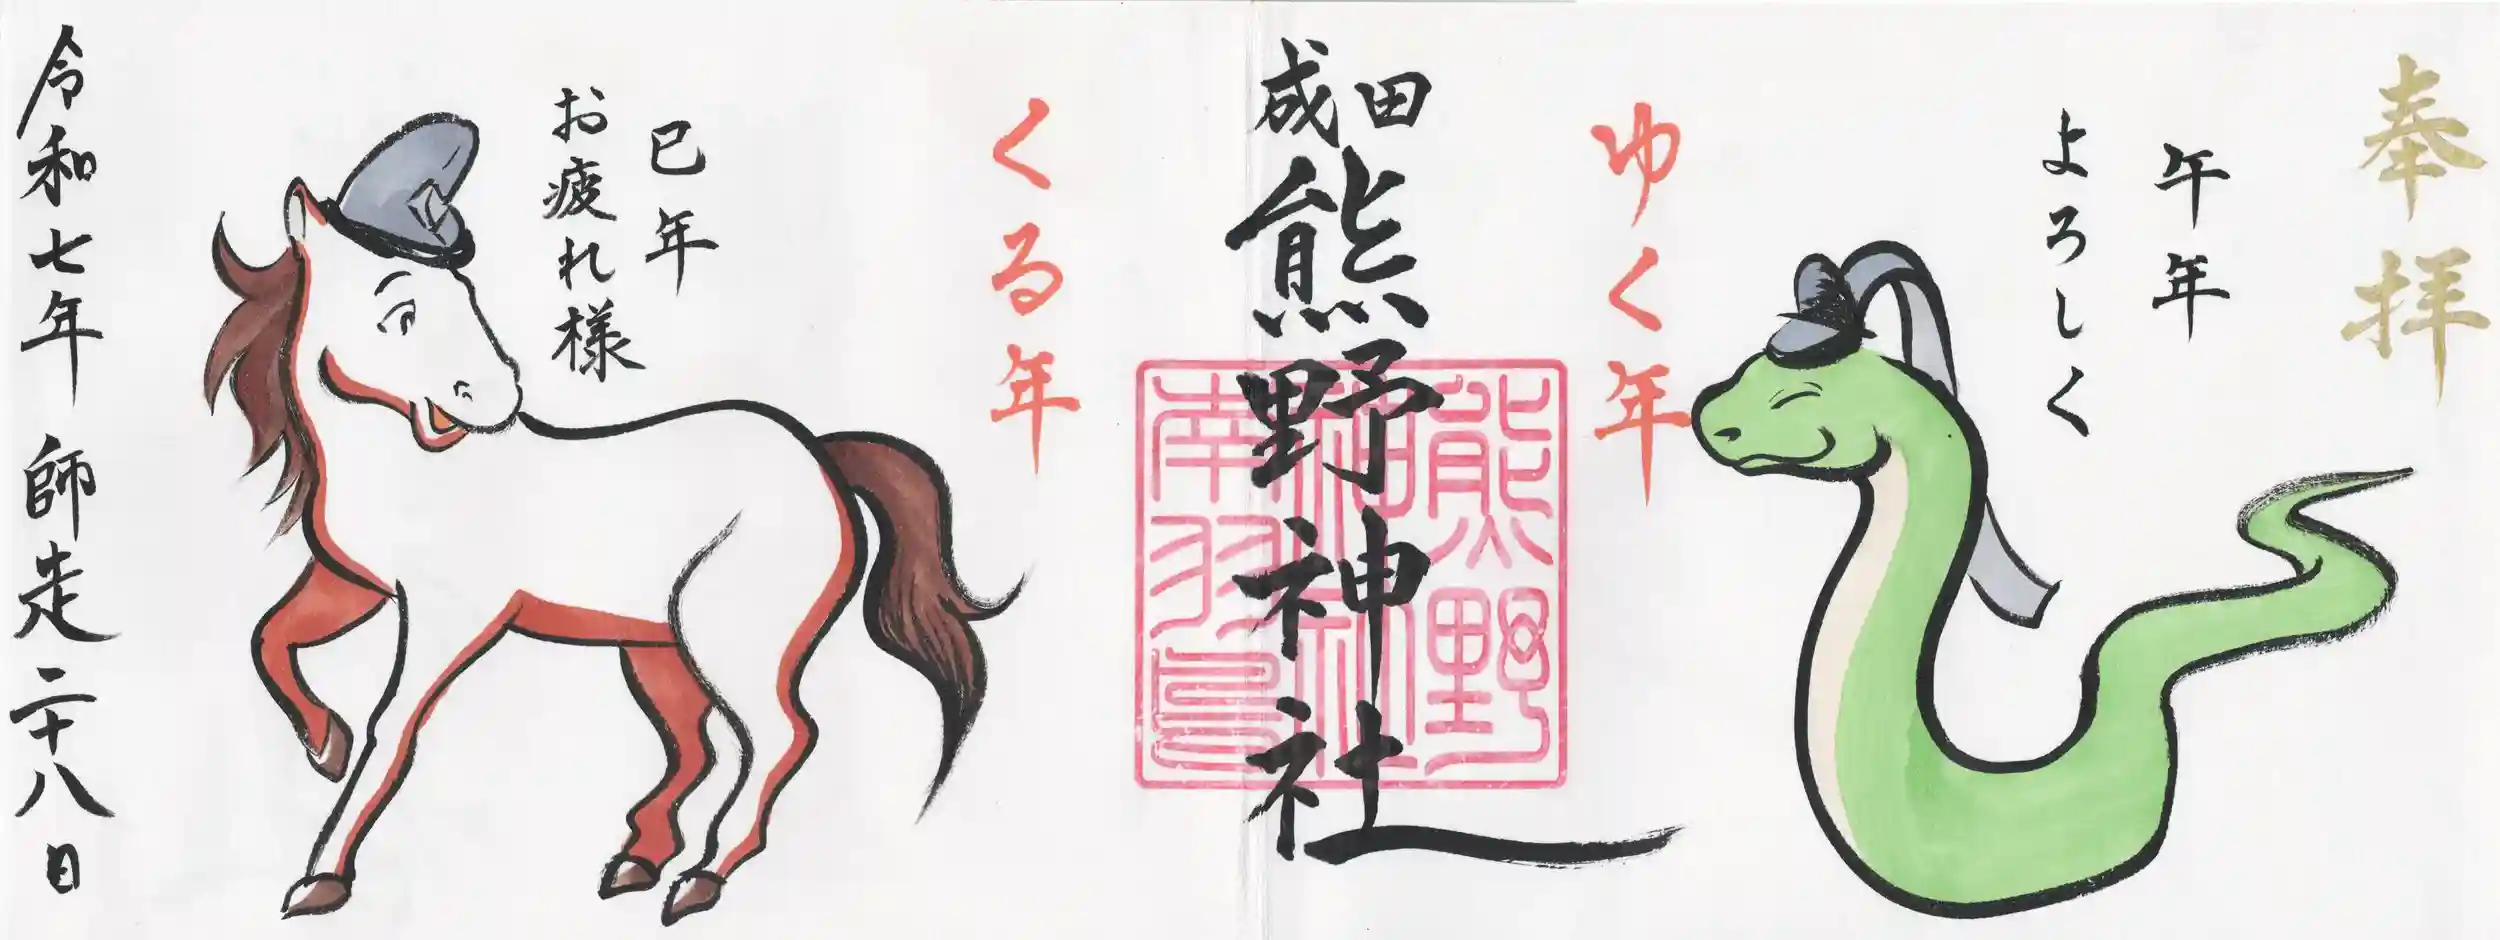 奉拝
午年
よろしく
ゆく年
成田
熊野神社
熊野
神社
南羽鳥
くる年
巳年
お疲れ様
令和七年 師走 二十八日